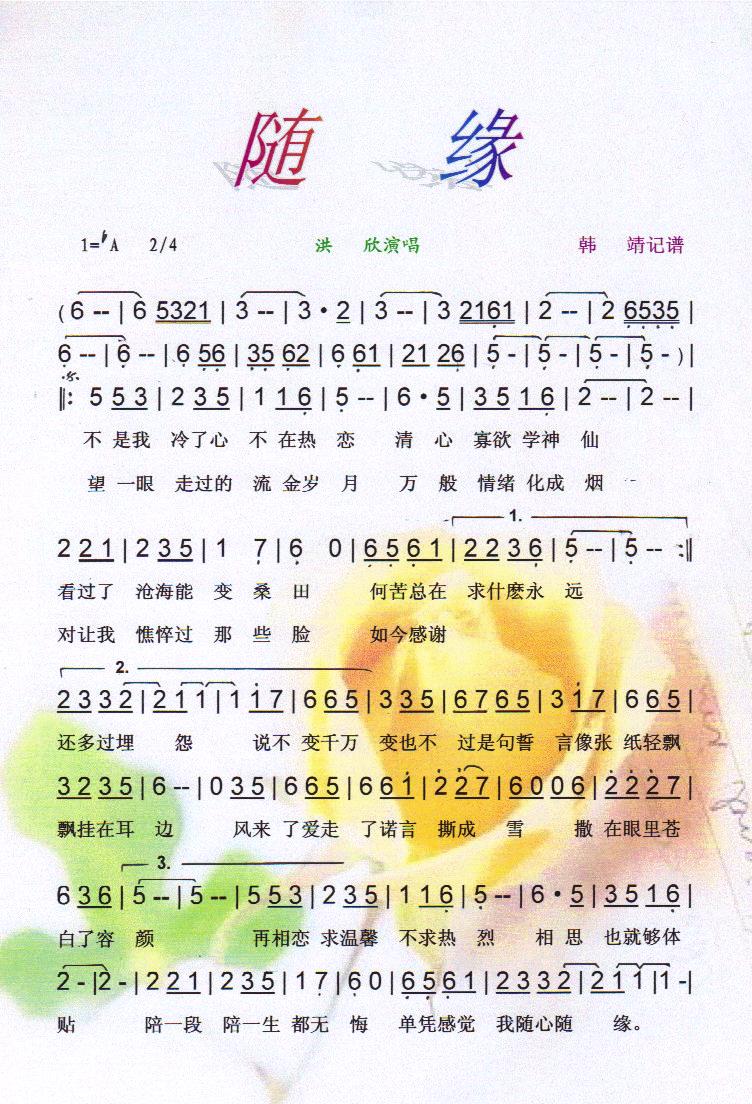 随 缘
1=♭A 2/4 洪 欣演唱 韩 靖记谱
( 6 -- | 6 5321 | 3 -- | 3 · 2 | 3 -- | 3 2161 | 2 -- | 2 6535 |
6 -- | 6 -- | 6 56 | 35 62 | 6 61 | 21 26 | 5 - | 5 - | 5 - | 5 - ) |
‖: 5 53 | 2 35 | 1 16 | 5 -- | 6 · 5 | 35 16 | 2 -- | 2 -- |
不 是我 冷了心 不 在热 恋 清 心 寡欲 学神 仙
望 一眼 走过的 流 金岁 月 万 般 情绪 化成 烟
1.
2 21 | 2 35 | 1 7 | 6 0 | 65 61 | 22 36 | 5 -- | 5 -- :‖
看过了 沧海能 变 桑 田 何苦总在 求什麽永 远
对让我 憔悴过 那 些 脸 如今感谢
2.
23 32 | 21 1 | 1 17 | 6 65 | 3 35 | 67 65 | 3 17 | 6 65 |
还多过埋 怨 说不 变千万 变也不 过是句誓 言像张 纸轻飘
32 35 | 6 -- | 0 35 | 6 65 | 6 61 | 2 27 | 60 06 | 22 27 |
飘挂在耳 边 风来 了爱走 了诺言 撕成 雪 撒 在眼里苍
3.
6 36 | 5 -- | 5 -- | 5 53 | 2 35 | 1 16 | 5 -- | 6 · 5 | 35 16 |
白了容 颜 再相恋 求温馨 不求热 烈 相 思 也就够体
2 - | 2 - | 2 21 | 2 35 | 1 7 | 6 0 | 65 61 | 23 32 | 21 1 | 1 - |
贴 陪一段 陪一生 都无 悔 单凭感觉 我随心随 缘。